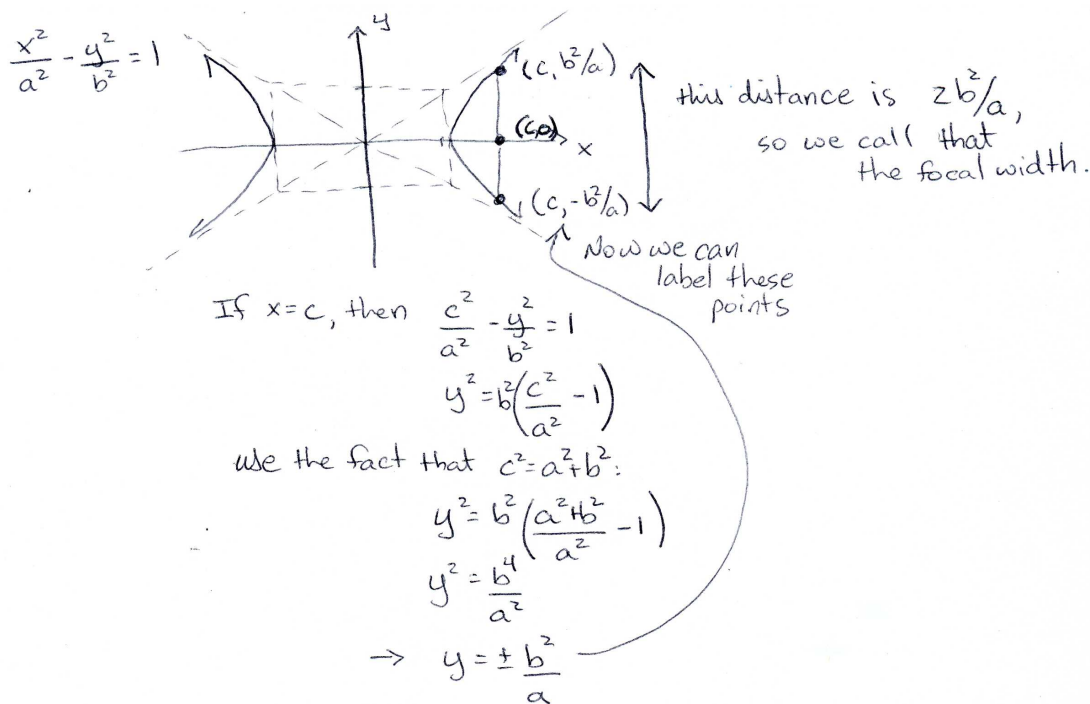 x²/a² - y²/b² = 1
y
(c, b²/a)
(c,0)
x
(c, -b²/a)
this distance is 2b²/a,
so we call that
the focal width.
Now we can
label these
points
If x=c, then c²/a² - y²/b² = 1
y² = b²(c²/a² - 1)
use the fact that c²=a²+b²:
y² = b²(a²+b²/a² - 1)
y² = b⁴/a²
→ y = ± b²/a